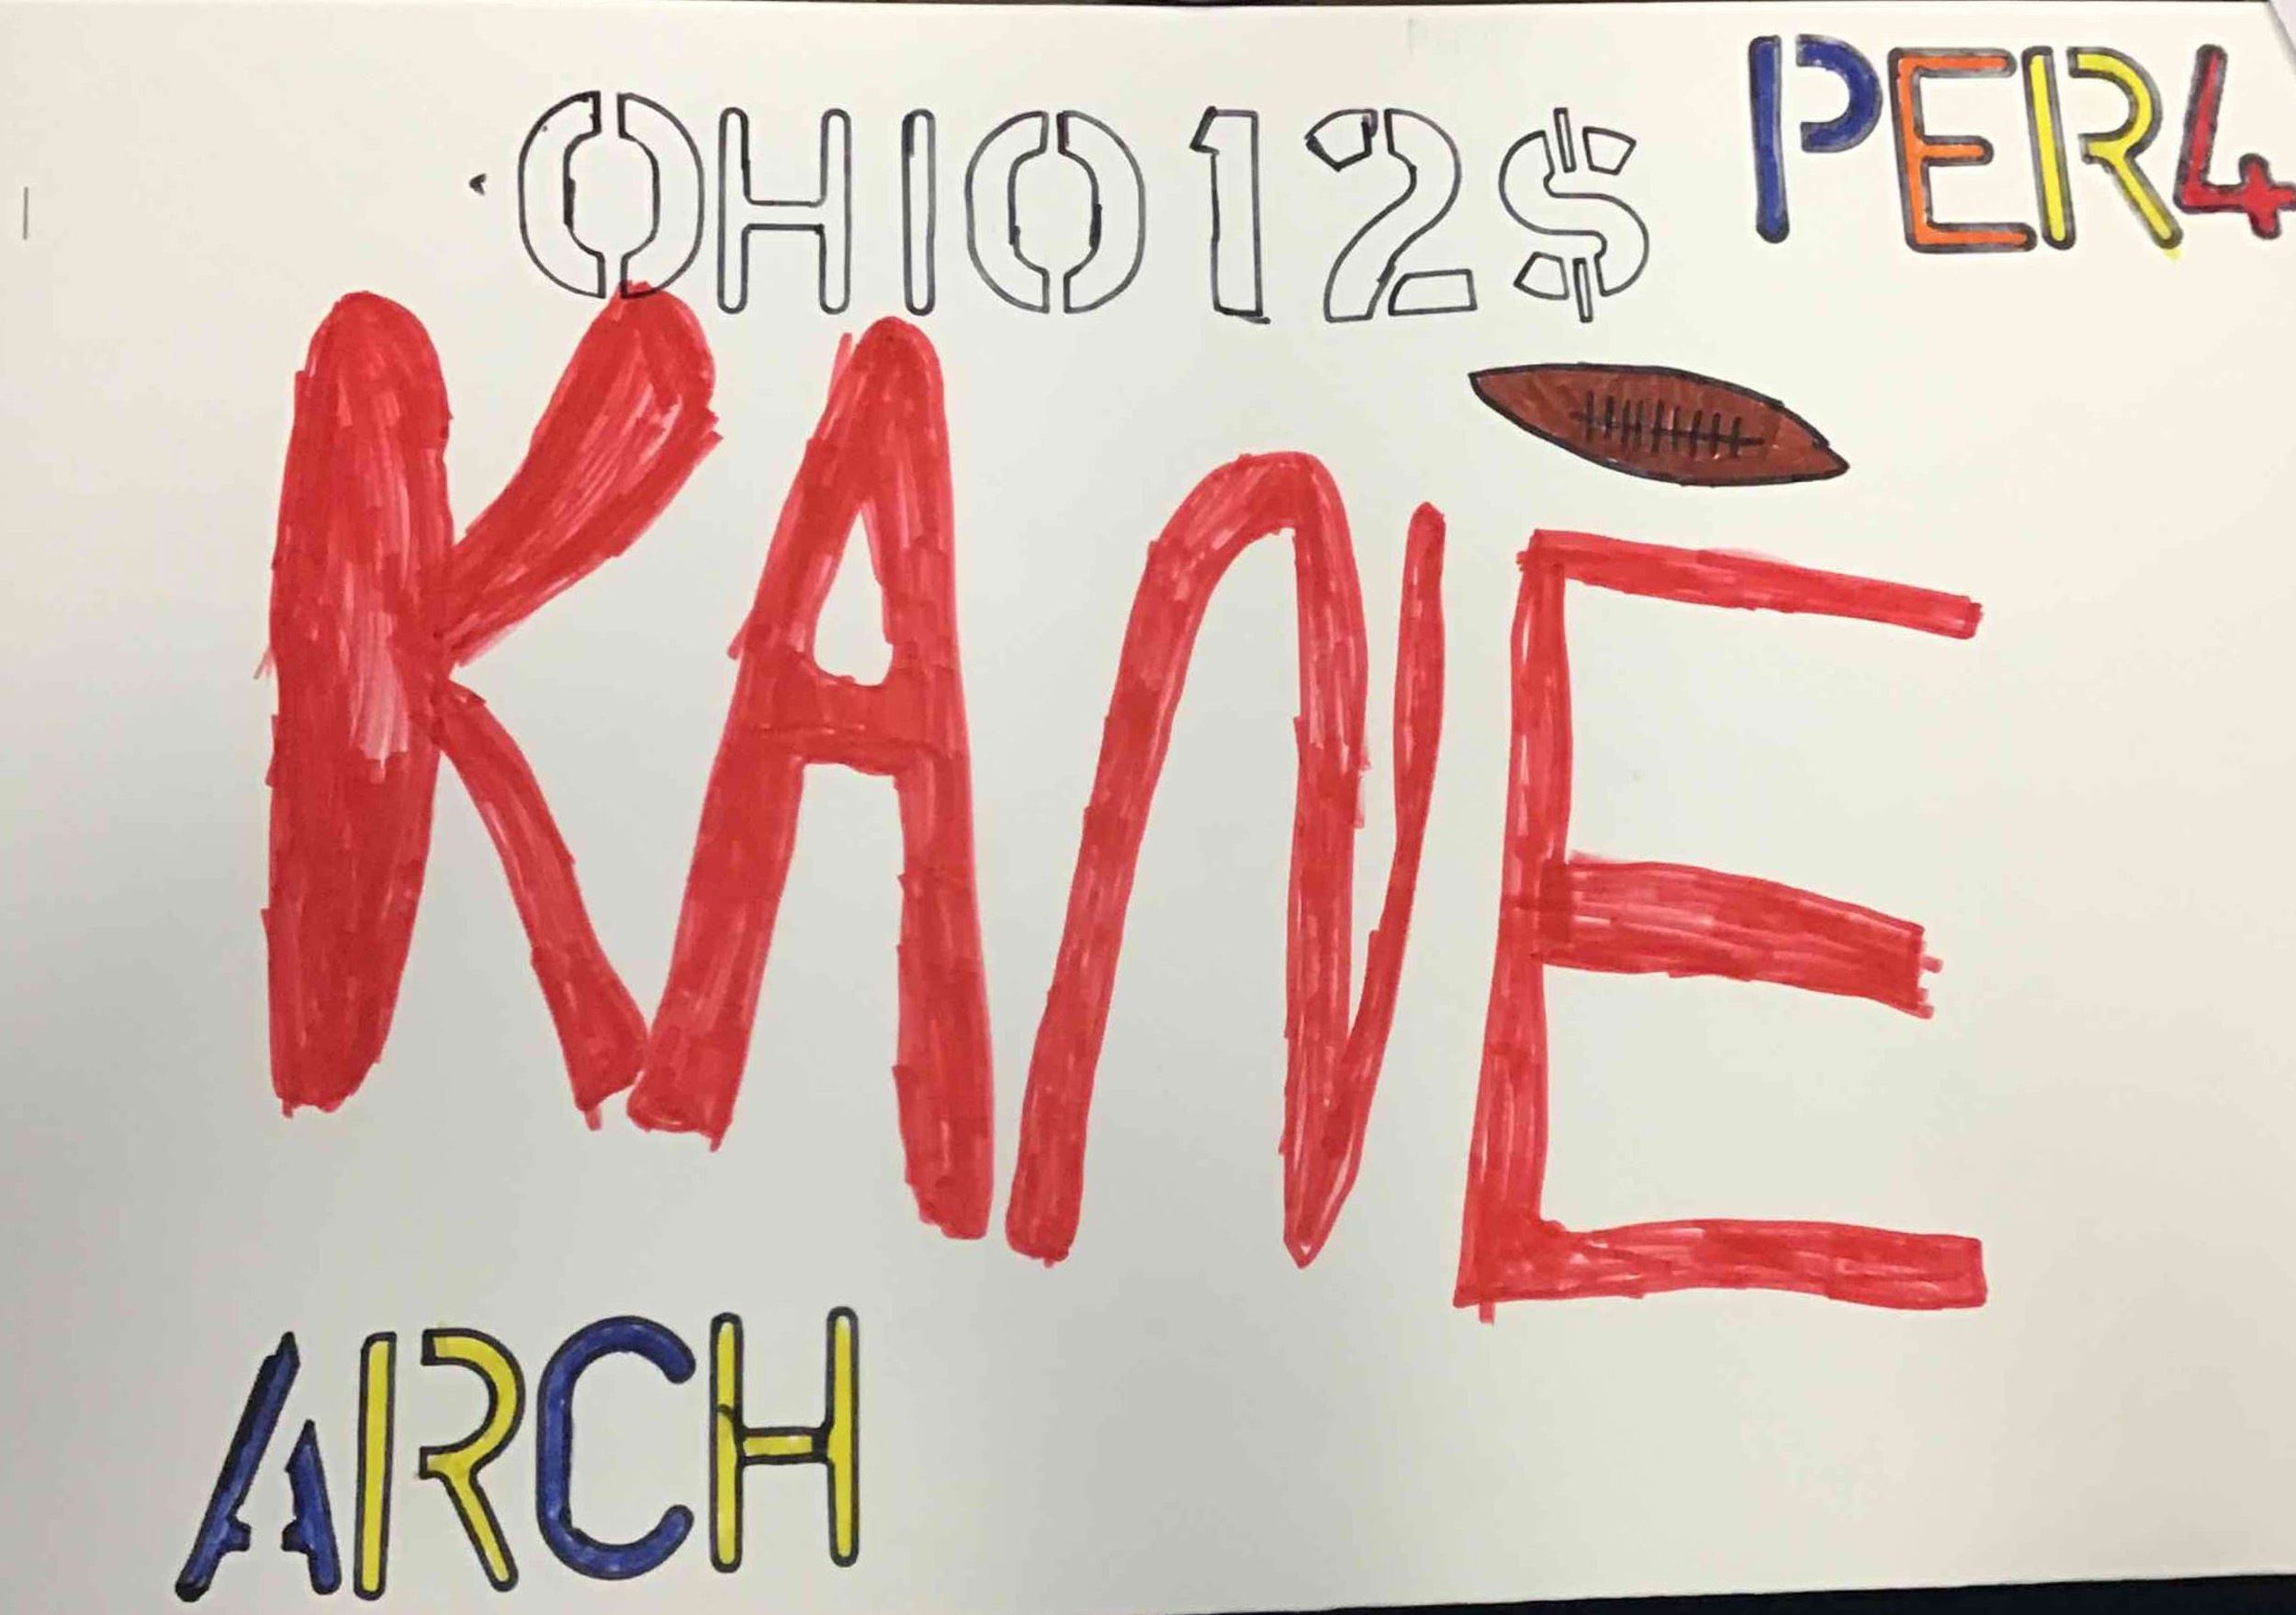 OHIO12$
PER4
KANE
ARCH